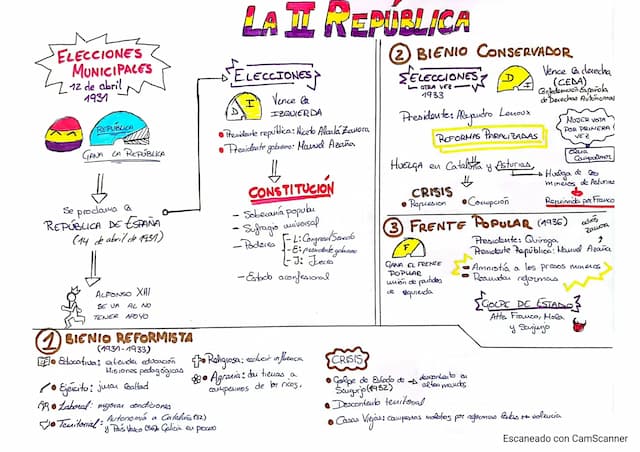 LA II REPÚBLICA
ELECCIONES
MUNICIPALES
12 de abril
1931
REPÚBLICA
GANA LA REPÚBLICA
Se proclama la
REPÚBLICA DE ESPAÑA
(14 de abril de 1931)
ALFONSO XIII
SE VA AL NO
TENER APOYO
ELECCIONES
D I
Vence la
IZQUIERDA
Presidente república: Niceto Alcalá Zamora
Presidente gobierno: Manuel Azaña
CONSTITUCIÓN
- Soberanía popular
- Sufragio universal
- Poderes
- L: Congreso/Senado
- E: presidente gobierno
- J: Jueces
- Estado aconfesional
2 BIENIO CONSERVADOR
ELECCIONES
OTRA VEZ
1933
D I
Vence la derecha
(CEDA)
Confederación Española
de Derechas Autónomas
Presidente: Alejandro Lerroux
REFORMAS PARALIZADAS
MUJER VOTA
POR PRIMERA
VEZ
Clara
Campoamor
HUELGA en Cataluña y Asturias
Huelga de los
mineros de Asturias
Reprimida por Franco
CRISIS
Represión
Corrupción
3 FRENTE POPULAR (1936)
F
GANA EL FRENTE
POPULAR
unión de partidos
de izquierda
Presidente: Quiroga
Presidente República: Manuel Azaña
- Amnistía a los presos mineros
- Reanudar reformas
GOLPE DE ESTADO
Franco, Mola
y Sanjurjo
1 BIENIO REFORMISTA
(1931-1933)
Educativa: educación
Misiones pedagógicas
Ejército: jurar lealtad
Laboral: mejorar condiciones
Territorial: Autonomía a Cataluña (32)
y País Vasco (36) Galicia en proceso
Religiosa: reducir influencia
Agraria: dar tierras a
campesinos de los ricos
CRISIS
Golpe de Estado de
Sanjurjo (1932)
descontento en
altos mandos
Descontento territorial
Casas Viejas: campesinos molestos por reformas lentas violencia
Escaneado con CamScanner